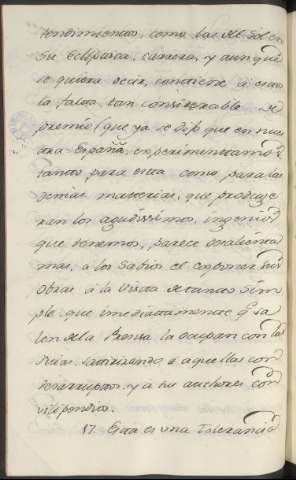 tendimientos, como las del Sol en
su Ecliptica, carrera, y aunque
se quiera decir, consiste, â cerca
la falta tan considerable de
premio (que ya se dijo que en nues
tra España, experimentamos
tanto para esta como para las
demas materias, que produxe
ran los agudissimos ingenios
que tenemos, parece desalienta
mas, a los Sabios el exponer sus
obras â la vista de tanto sim
ple: que imediatamente q.e sa
len de la Prensa la ocupan con las
suias, satirizando â aquellas con
y a sus authores con
vilipendios.
17. Esta es una tolerancia